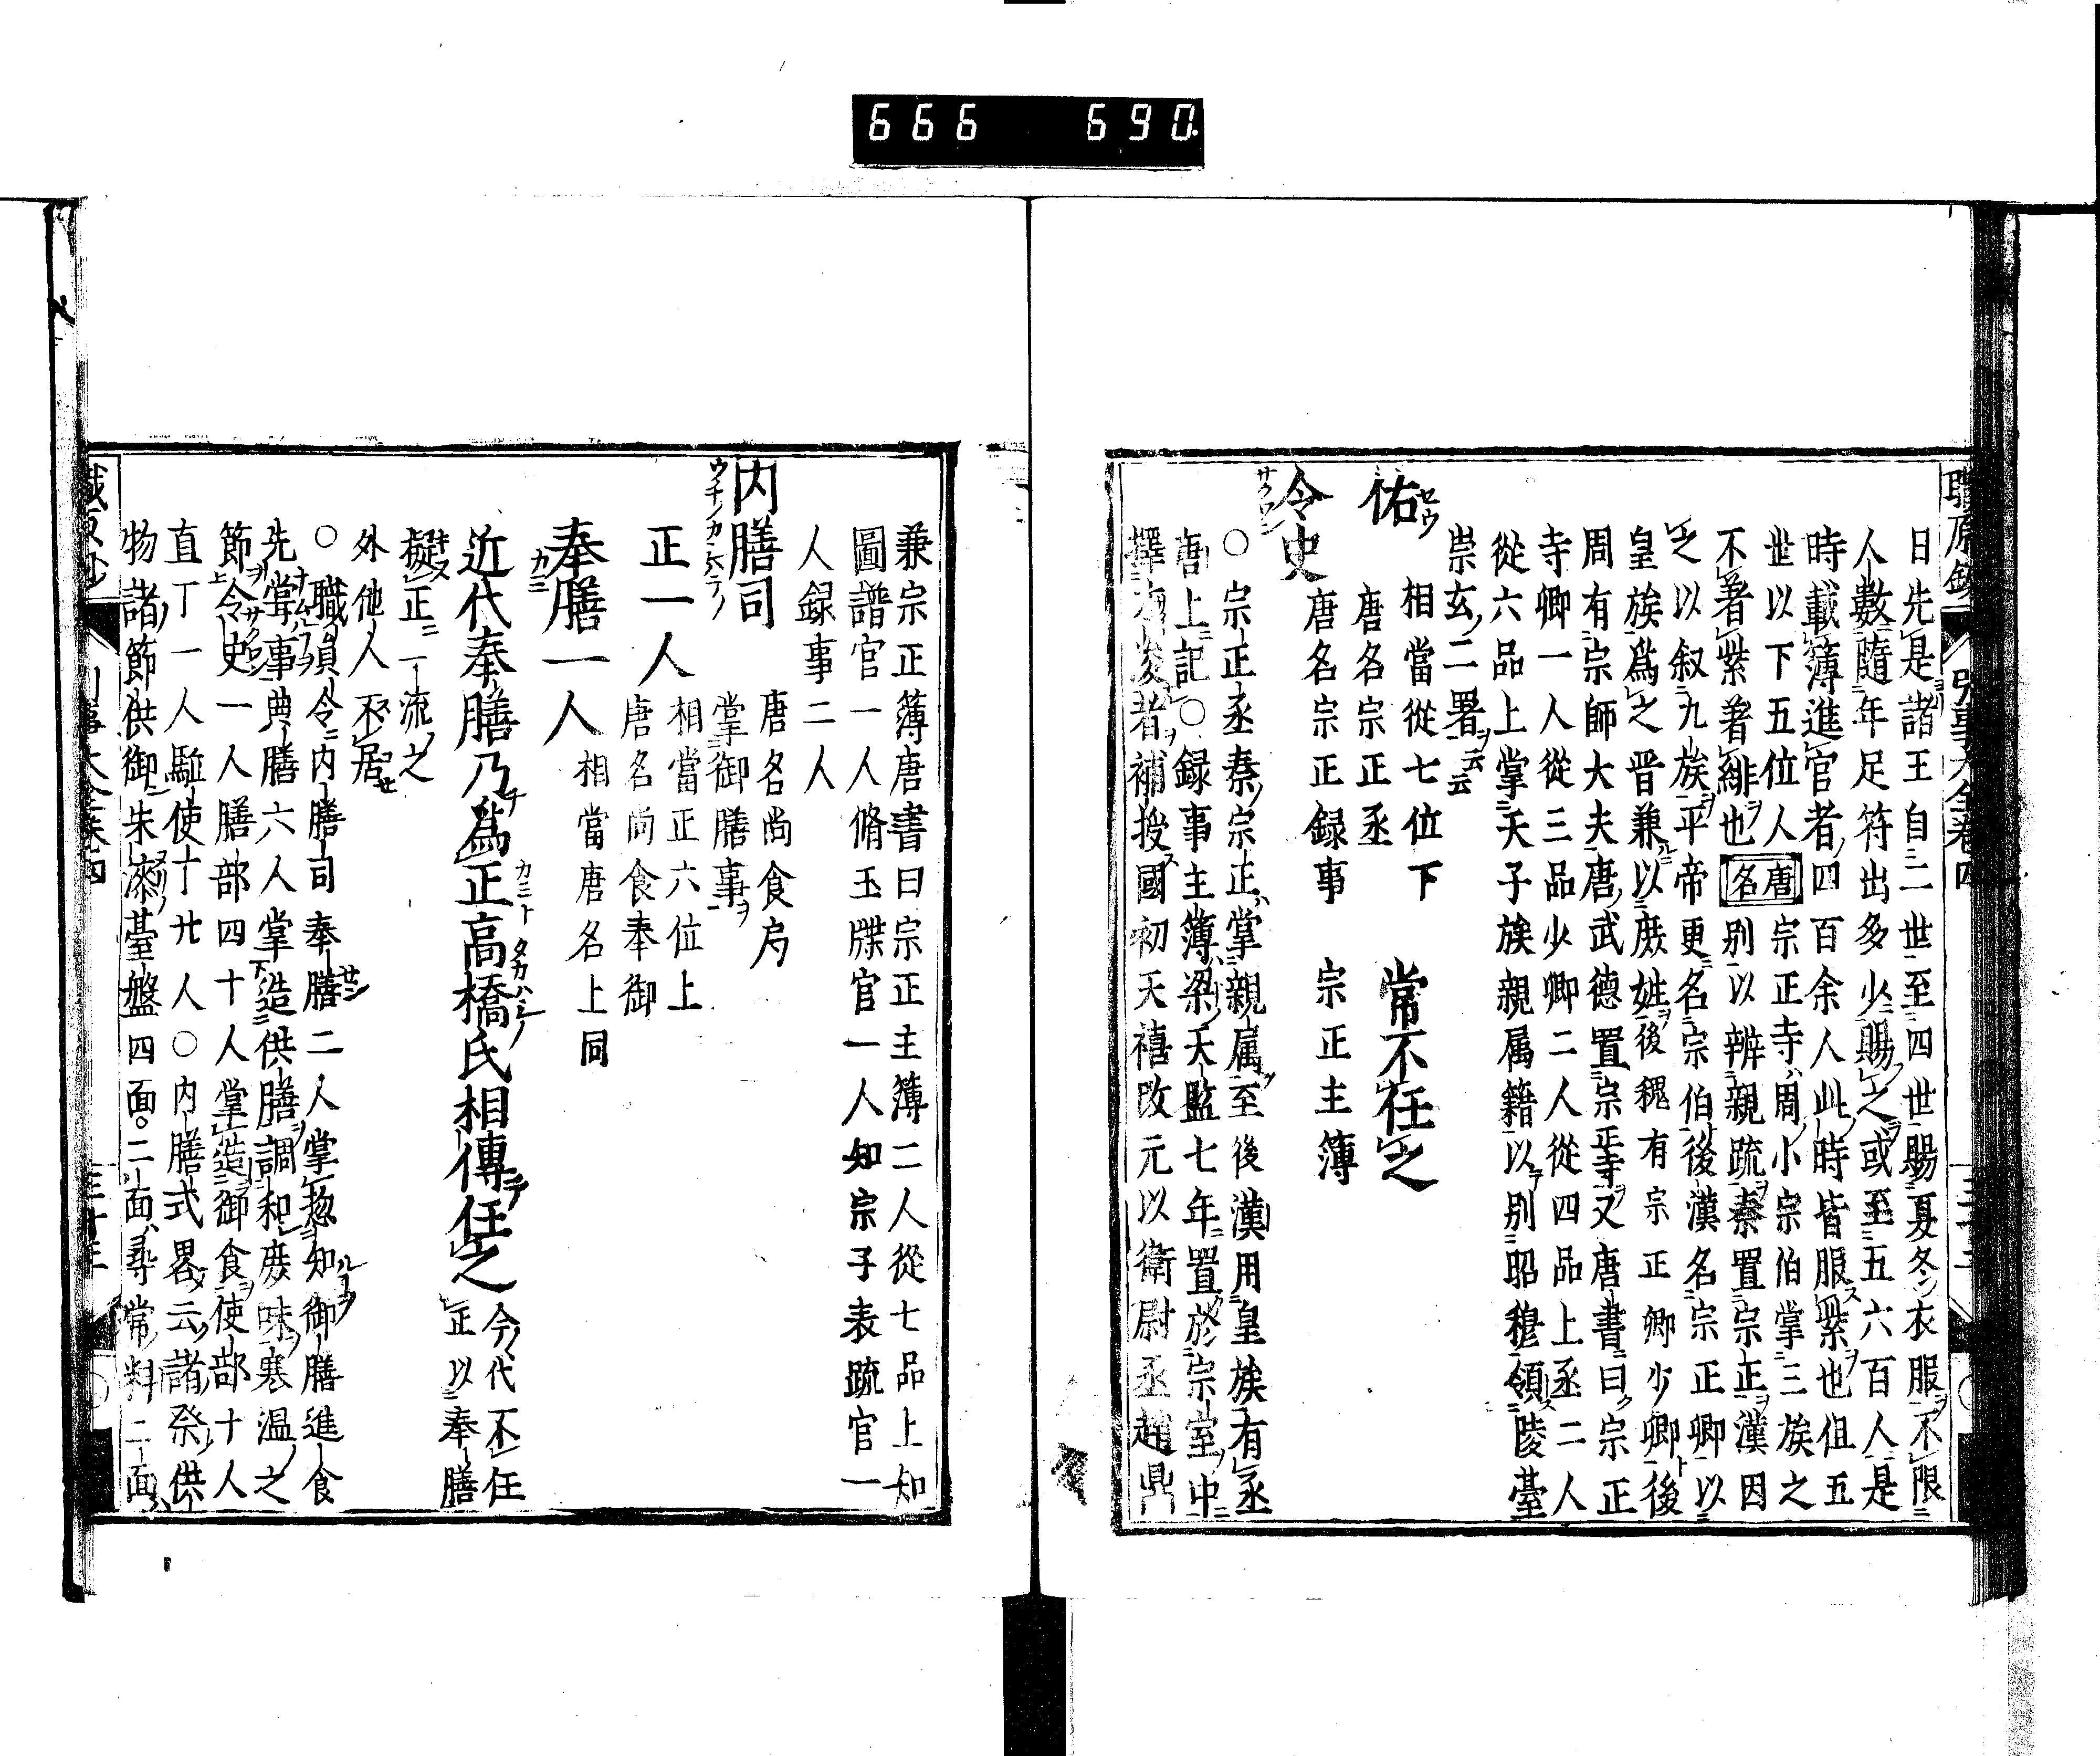 666 690
日先是諸王自二世至四世賜夏冬衣服不限
人數隨年足符出多少賜之或至五六百人是
時載簿進官者四百余人此時皆服紫也但五
世以下五位人唐名宗正寺周小宗伯掌三族之
不著紫著緋也別以辨親疏秦置宗正漢因
之以叙九族平帝更名宗伯後漢名宗正卿以
皇族爲之晋兼以庶姓後穐有宗正卿少卿後
周有宗師大夫唐武德置宗正寺又唐書曰宗正
寺卿一人從三品少卿二人從四品上丞二人
從六品上掌天子族親属籍以別昭穆領陵臺
崇玄二署云云
佑 セウ
相當從七位下 常不任之
唐名宗正丞
令史 サクワン
唐名宗正録事 宗正主簿
○宗正丞秦宗正掌親属至後漢用皇族有丞
唐上記○録事主簿梁天監七年置於宗室中
擇才後者補授國初天禧改元以衛尉丞趙鼎
兼宗正簿唐書曰宗正主簿二人從七品上知
圖譜官一人脩玉牒官一人知宗子表疏官一
人録事二人
内膳司 唐名尚食局
掌御膳事
正一人 相當正六位上
唐名尚食奉御
奉膳一人 相當唐名上同
近代奉膳乃爲正高橋氏相傳任之 今代不任
正以奉膳
擬正一流之
外他人不居
○職員令内膳司奉膳二人掌惣知御膳進食
先甞事典膳六人掌造供膳調和庶味寒温之
節令史一人膳部四十人掌造御食使部十人
直丁一人駈使丁廿人○内膳式畧云諸祭供
物諸節供御朱漆臺盤四面二面尋常料二面